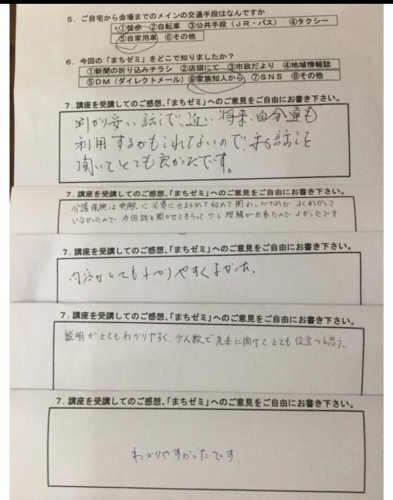 5. ご自宅から会場までのメインの交通手段はなんですか
①徒歩 ②自転車 ③公共手段（JR・バス） ④タクシー
⑤自家用車 ⑥その他
6. 今回の「まちゼミ」をどこで知りましたか？
①新聞の折り込みチラシ ②店頭にて ③市政だより ④地域情報誌
⑤DM（ダイレクトメール） ⑥家族知人から ⑦SNS ⑧その他
7. 講座を受講してのご感想、「まちゼミ」へのご意見をご自由にお書き下さい。
判り安い話しで、近い将来、自分達も
利用するかもしれないので、お話しを
聞いてとても良かったです。
7. 講座を受講してのご感想、「まちゼミ」へのご意見をご自由にお書き下さい。
介護保険は実際に必要にせまられて初めて関わ
いなかったので今回話を聞かせてもらって少し理解が出来たのでよかったです
7. 講座を受講してのご感想、「まちゼミ」へのご意見をご自由にお書き下さい。
内容がとてもわかりやすくよかった。
7. 講座を受講してのご感想、「まちゼミ」へのご意見をご自由にお書き下さい。
説明がとてもわかりやすく、少人数で先々に向けてとても役立つと思う。
7. 講座を受講してのご感想、「まちゼミ」へのご意見をご自由にお書き下さい。
わかりやすかったです。